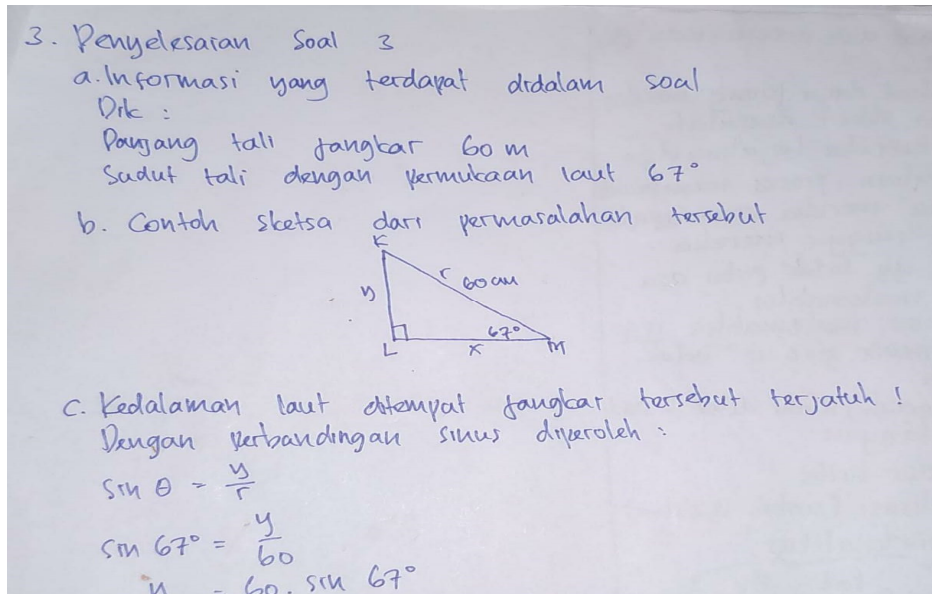 3. Penyelesaian Soal 3
a. Informasi yang terdapat didalam soal
Dik :
Panjang tali jangkar 60 m
Sudut tali dengan permukaan laut 67°
b. Contoh sketsa dari permasalahan tersebut
K
r 60 cm
y
67°
L x M
c. Kedalaman laut ditempat jangkar tersebut terjatuh !
Dengan perbandingan sinus diperoleh :
sin θ = y/r
sin 67° = y/60
y = 60 . sin 67°